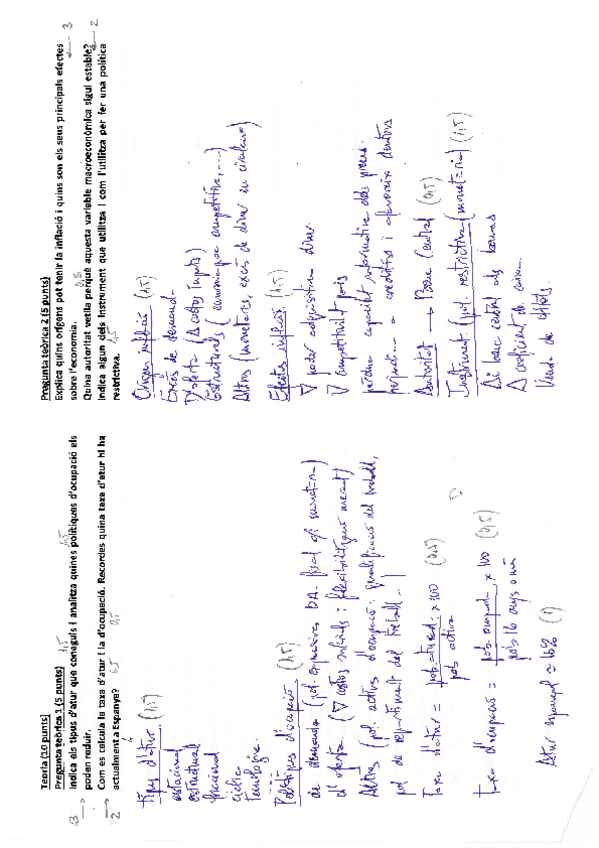 Teoria (10 punts)
Pregunta teòrica 1 (5 punts) 1,5
Indica els tipus d'atur que coneguis i analitza quines polítiques d'ocupació els
3 →
poden reduir.
Com es calcula la taxa d'atur i la d'ocupació. Recordes quina taxa d'atur hi ha
→
2
actualment a Espanya? 0,5 0,5
Tipus d'atur (1,5)
estacional
estructural
friccional
cíclic
Tecnològic.
Polítiques d'ocupació (1,5)
de demanda (pol. expansives DA. fiscal o/i monetària)
d'oferta (∇ costos salarials i flexibilització mercat)
Altres (pol. actives d'ocupació: qualificació del treball,
pol de repartiment del treball...)
Taxa d'atur = pob. aturada / pob activa × 100 (0,5)
Taxa d'ocupació = pob. ocupada / pob 16 anys o més × 100 (0,5)
Atur espanyol ≈ 16% (1)
Pregunta teòrica 2 (5 punts)
Explica quins orígens pot tenir la inflació i quins son els seus principals efectes
sobre l'economia. ← 3
Quina autoritat vetlla perquè aquesta variable macroeconòmica sigui estable? 0,5
← 2
Indica algun dels instrument que utilitza i com l'utilitza per fer una política
restrictiva. 1,5
Origen inflació (1,5)
Excés de demanda.
D'oferta (Δ costos Inputs)
Estructurals (economia poc competitiva, ...)
Altres (monetaris, excés de diner en circulació)
Efectes inflació (1,5)
∇ poder adquisitiu diner.
∇ competitivitat país
perdua capacitat informativa dels preus.
a creditors i afavoreix deutors
Autoritat → Banc Central (0,5)
Instrument (pol. restrictiva (monetària) (1,5)
Δ i banc central als bancs
Δ coeficient de caixa.
Venda de títols.